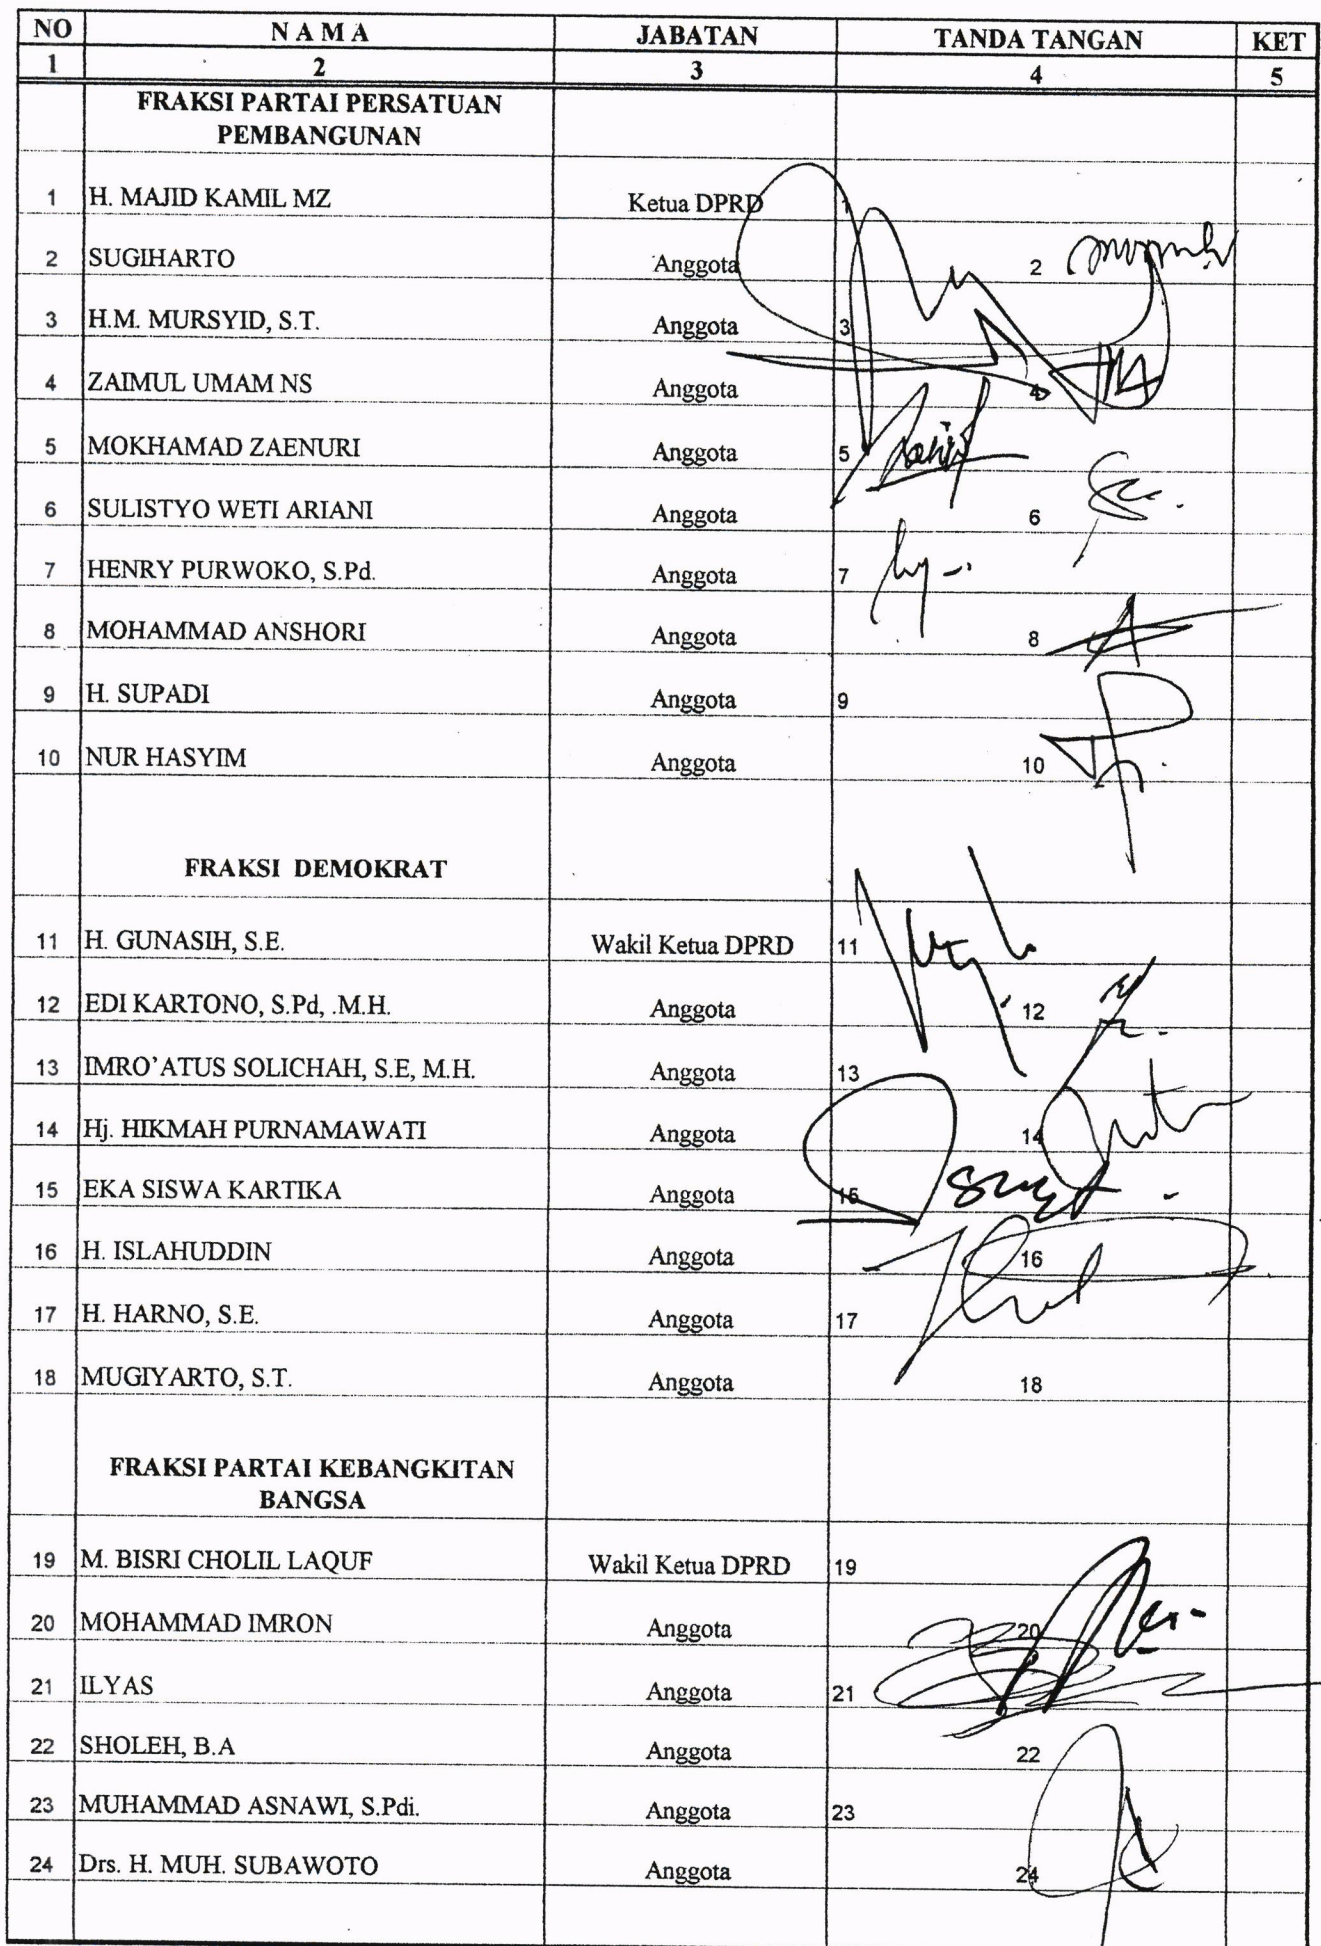 NO N A M A JABATAN TANDA TANGAN KET
1 2 3 4 5
FRAKSI PARTAI PERSATUAN
PEMBANGUNAN
1 H. MAJID KAMIL MZ Ketua DPRD 1
2 SUGIHARTO Anggota 2
3 H.M. MURSYID, S.T. Anggota 3
4 ZAIMUL UMAM NS Anggota 4
5 MOKHAMAD ZAENURI Anggota 5
6 SULISTYO WETI ARIANI Anggota 6
7 HENRY PURWOKO, S.Pd. Anggota 7
8 MOHAMMAD ANSHORI Anggota 8
9 H. SUPADI Anggota 9
10 NUR HASYIM Anggota 10
FRAKSI DEMOKRAT
11 H. GUNASIH, S.E. Wakil Ketua DPRD 11
12 EDI KARTONO, S.Pd, .M.H. Anggota 12
13 IMRO'ATUS SOLICHAH, S.E, M.H. Anggota 13
14 Hj. HIKMAH PURNAMAWATI Anggota 14
15 EKA SISWA KARTIKA Anggota 15
16 H. ISLAHUDDIN Anggota 16
17 H. HARNO, S.E. Anggota 17
18 MUGIYARTO, S.T. Anggota 18
FRAKSI PARTAI KEBANGKITAN
BANGSA
19 M. BISRI CHOLIL LAQUF Wakil Ketua DPRD 19
20 MOHAMMAD IMRON Anggota 20
21 ILYAS Anggota 21
22 SHOLEH, B.A Anggota 22
23 MUHAMMAD ASNAWI, S.Pdi. Anggota 23
24 Drs. H. MUH. SUBAWOTO Anggota 24